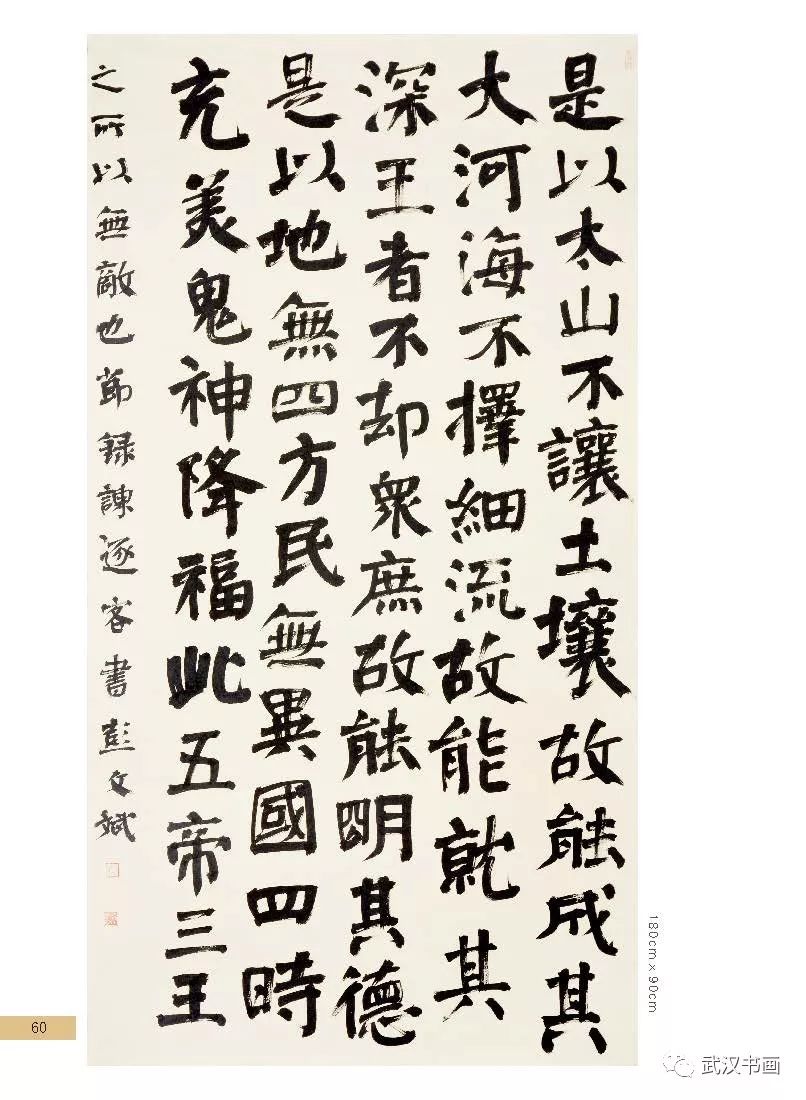 是以太山不讓土壤故能成其
大河海不擇細流故能就其
深王者不却衆庶故能明其德
是以地無四方民無異國四時
充美鬼神降福此五帝三王
之所以無敵也節録諫逐客書彭文斌
180cm x 90cm
60
武汉书画